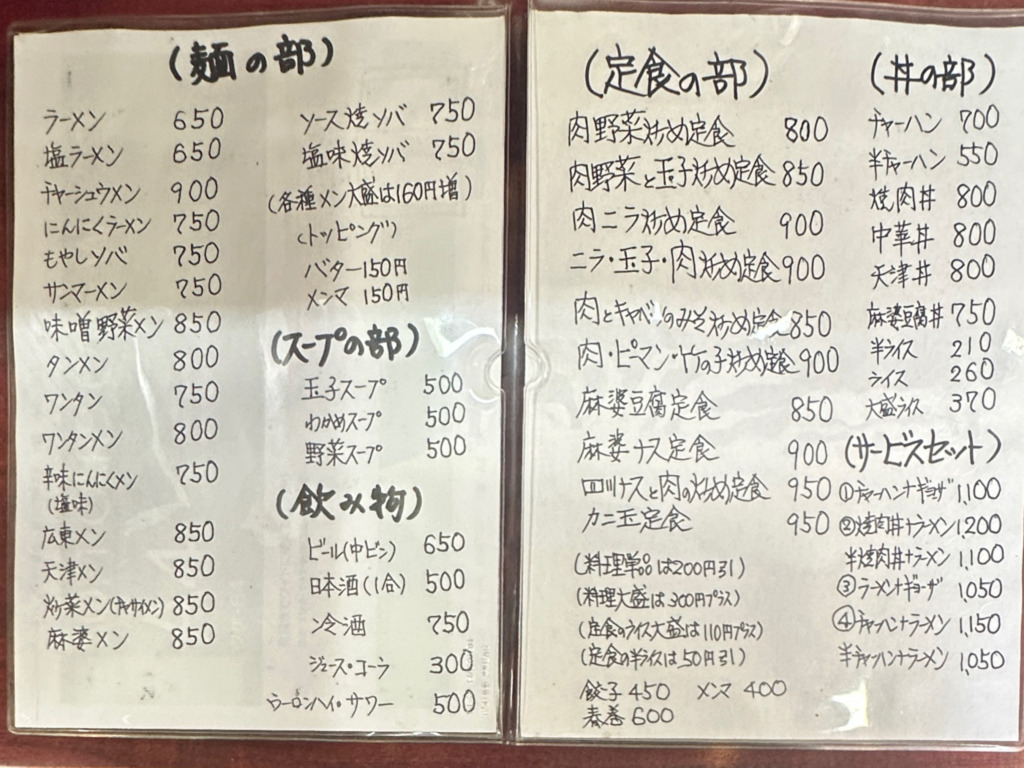 (麺の部)
ラーメン 650
塩ラーメン 650
チャーシュウメン 900
にんにくラーメン 750
もやしソバ 750
サンマーメン 750
味噌野菜メン 850
タンメン 800
ワンタン 750
ワンタンメン 800
辛味にんにくメン 750
(塩味)
広東メン 850
天津メン 850
炒菜メン(チャサイメン) 850
麻婆メン 850
ソース焼ソバ 750
塩味焼ソバ 750
(各種メン大盛は160円増)
(トッピング)
バター150円
メンマ 150円
(スープの部)
玉子スープ 500
わかめスープ 500
野菜スープ 500
(飲み物)
ビール(中ビン) 650
日本酒(1合) 500
冷酒 750
ジュース・コーラ 300
ウーロンハイ・サワー 500
(定食の部)
肉野菜炒め定食 800
肉野菜と玉子炒め定食 850
肉ニラ炒め定食 900
ニラ・玉子・肉炒め定食 900
肉とキャベツのみそ炒め定食 850
肉・ピーマン・竹の子炒め定食 900
麻婆豆腐定食 850
麻婆ナス定食 900
四川ナスと肉の炒め定食 950
カニ玉定食 950
(料理単品は200円引)
(料理大盛は300円プラス)
(定食のライス大盛は110円プラス)
(定食の半ライスは50円引)
餃子 450 メンマ 400
春巻 600
(丼の部)
チャーハン 700
半チャーハン 550
焼肉丼 800
中華丼 800
天津丼 800
麻婆豆腐丼 750
半ライス 210
ライス 260
大盛ライス 370
(サービスセット)
①チャーハン+ギョーザ 1,100
②焼肉丼+ラーメン 1,200
半焼肉丼+ラーメン 1,100
③ラーメン+ギョーザ 1,050
④チャーハン+ラーメン 1,150
半チャーハン+ラーメン 1,050